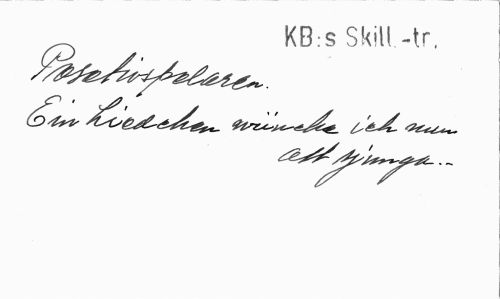 KB:s Skill.-tr.
Positivspelaren.
Ein Liedchen wünche ich nun
att sjunga..